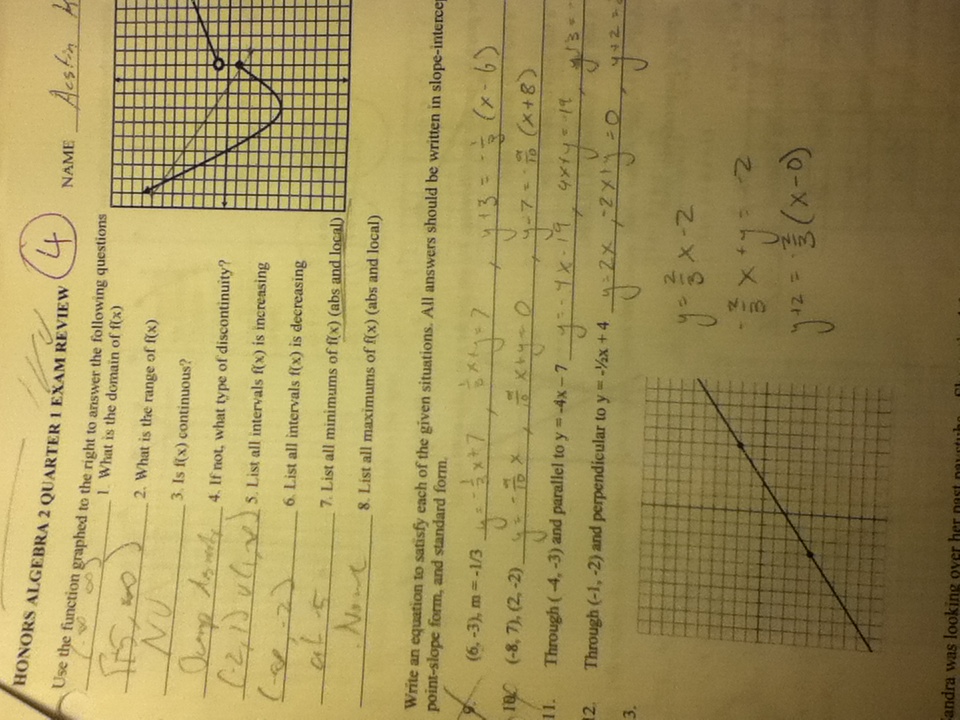 HONORS ALGEBRA 2 QUARTER 1 EXAM REVIEW 4 NAME Austin
Use the function graphed to the right to answer the following questions
(-∞, ∞) 1. What is the domain of f(x)
2. What is the range of f(x)
No 3. Is f(x) continuous?
4. If not, what type of discontinuity?
(-2, 1) ∪ (1, ∞) 5. List all intervals f(x) is increasing
(-∞, -2) 6. List all intervals f(x) is decreasing
at -5 7. List all minimums of f(x) (abs and local)
None 8. List all maximums of f(x) (abs and local)
Write an equation to satisfy each of the given situations. All answers should be written in
point-slope form, and standard form.
9. (6, -3), m = -1/3 y = -1/3 x + 7 , 1/3 x + y = 7 , y + 3 = -1/3 (x - 6)
10. (-8, 7), (2, -2) y = -9/10 x , 9/10 x + y = 0 , y - 7 = -9/10 (x + 8)
11. Through ( -4, -3) and parallel to y = -4x – 7 y = -4x - 19 , 4x + y = -19 , y + 3 = -
12. Through (-1, -2) and perpendicular to y = -½x + 4 y = 2x , -2x + y = 0 , y + 2 =
3.
y = 2/3 x - 2
-2/3 x + y = -2
y + 2 = 2/3 (x - 0)
was looking over her past